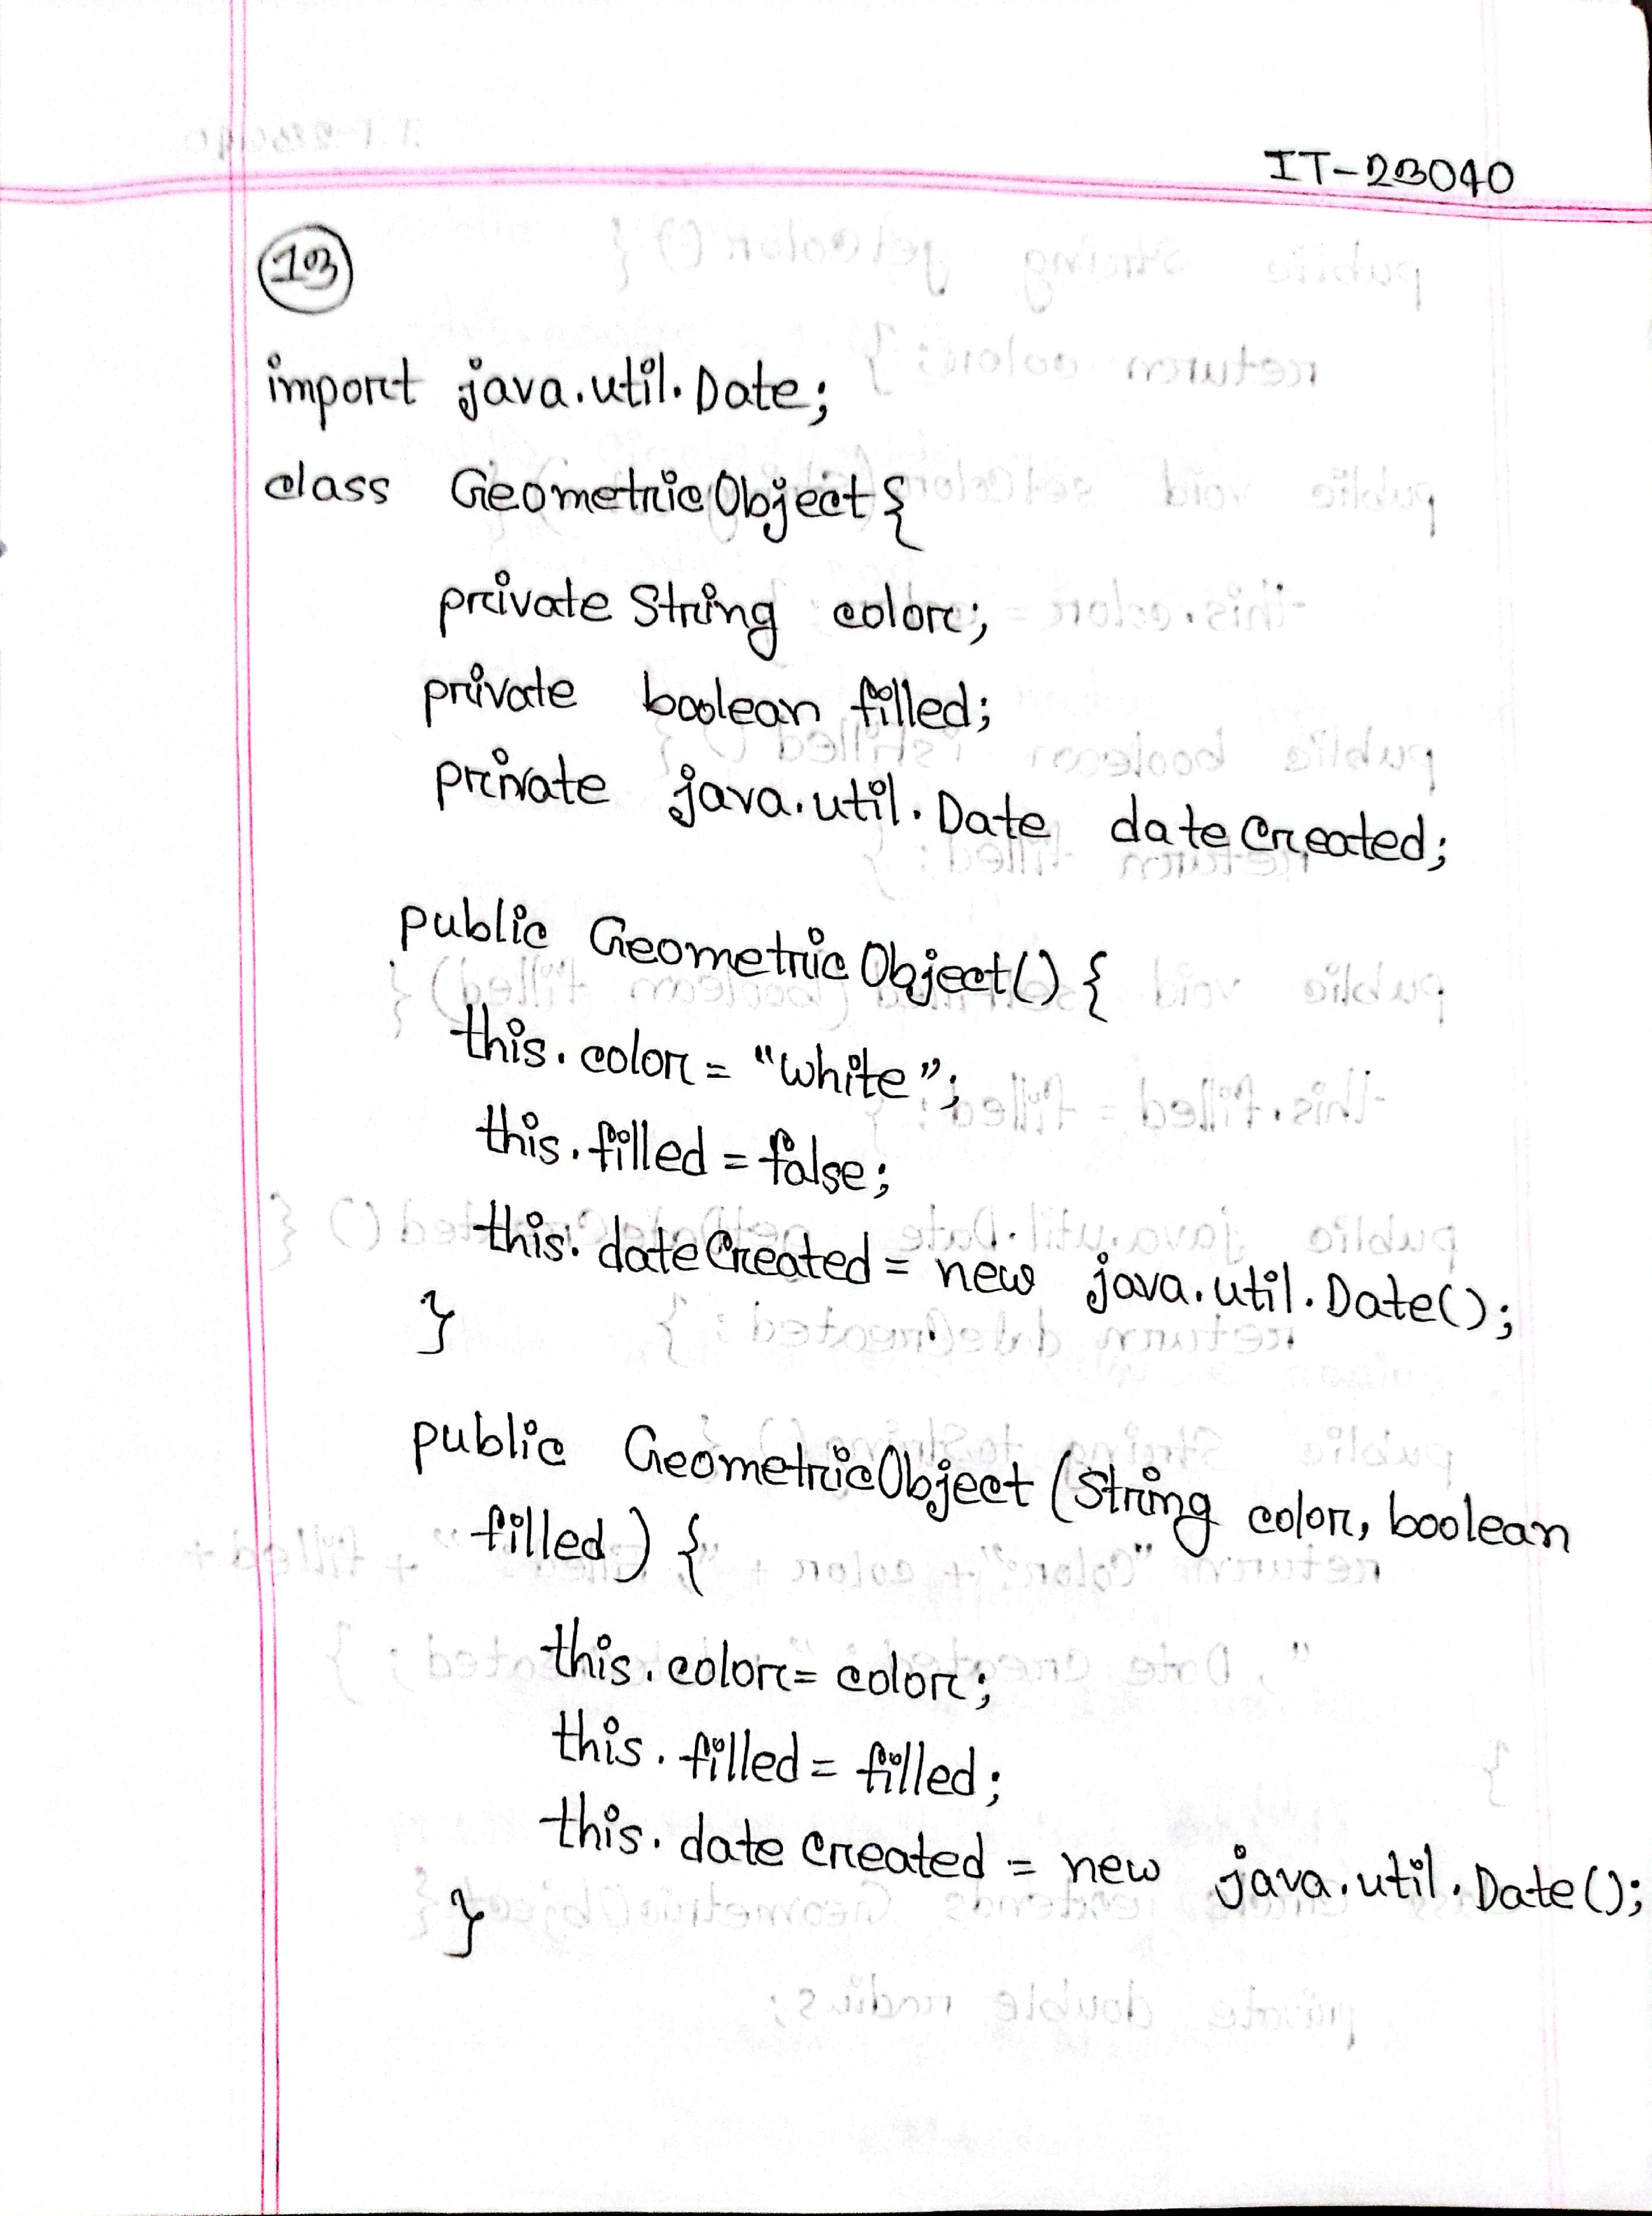 IT-23040
13
import java.util.Date;
class GeometricObject{
private String color;
private boolean filled;
private java.util.Date dateCreated;
public GeometricObject() {
this.color = "white";
this.filled = false;
this.dateCreated = new java.util.Date();
}
public GeometricObject (String color, boolean
filled) {
this.color = color;
this.filled = filled;
this.dateCreated = new java.util.Date();
}